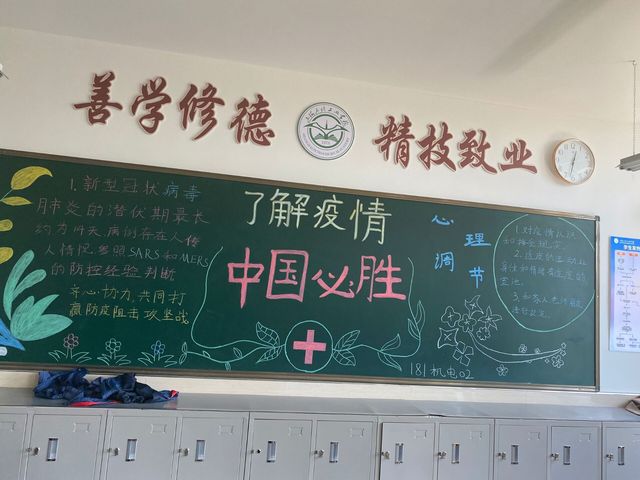 善学修德
精技致业
1.新型冠状病毒
肺炎的潜伏期最长
约为14天,病例存在人传
人情况,参照SARS和MERS
的防控经验判断
齐心协力,共同打
赢防疫阻击攻坚战
了解疫情
中国必胜
心理
调节
1.对疫情认识
和接受现实。
2.适度的
3.和家人
181机电02